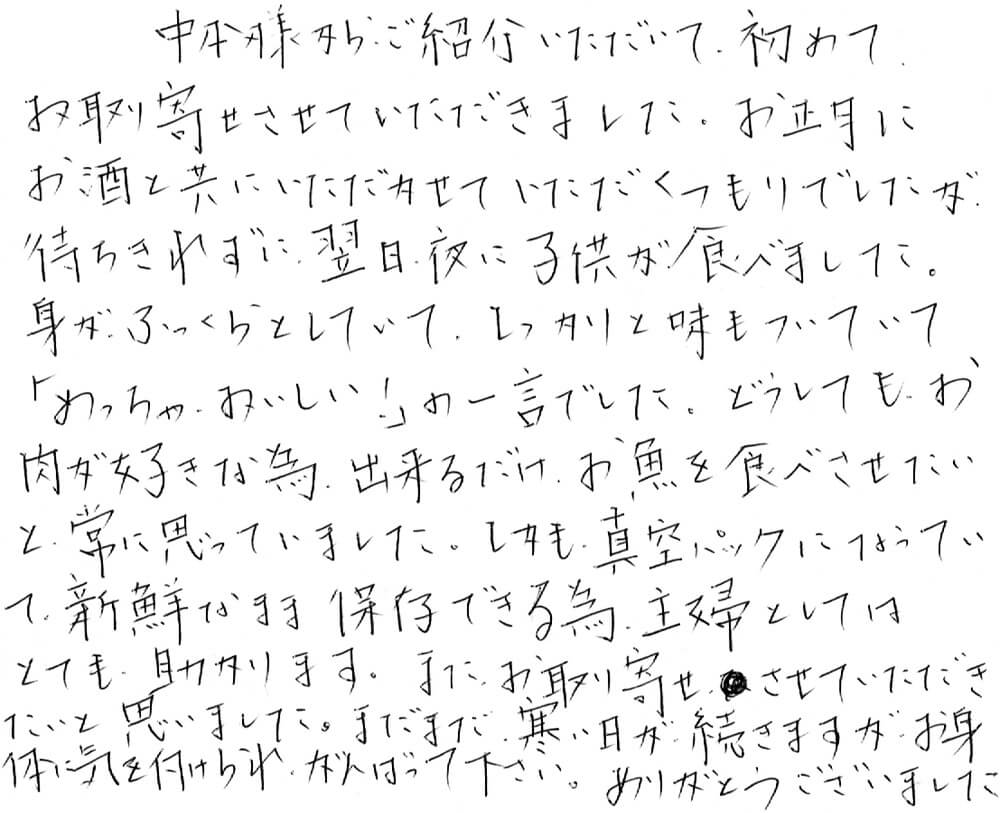 中本様からご紹介いただいて、初めて、
お取り寄せさせていただきました。お正月に
お酒と共にいただかせていただくつもりでしたが、
待ちきれずに、翌日、夜に子供が食べました。
身が、ふっくらとしていて、しっかりと味もついていて
「めっちゃ、おいしい！」の一言でした。どうしても、お
肉が好きな為、出来るだけ、お魚を食べさせたい
と、常に思っていました。しかも、真空パックになってい
て、新鮮なまま保存できる為、主婦としては
とても、助かります。また、お取り寄せ、させていただき
たいと思いました。まだまだ、寒い日が、続きますが、お身
体に気を付けられ、がんばって下さい。ありがとうございました